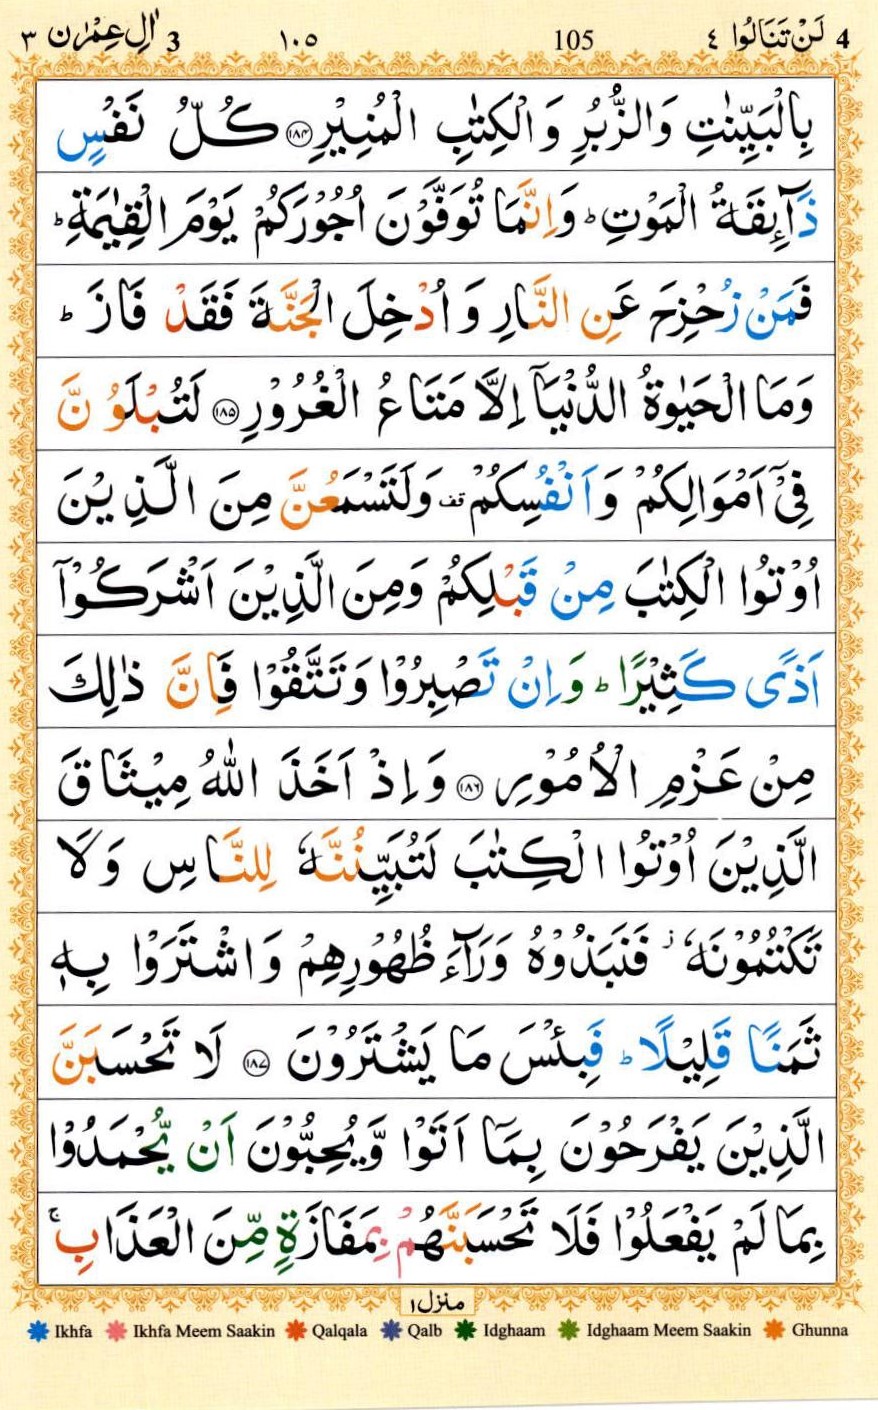 4 لَنْ تَنَالُوا ٤ 105 ١٠٥ 3 اٰلِ عِمْرٰن ٣
بِالْبَيِّنٰتِ وَالزُّبُرِ وَالْكِتٰبِ الْمُنِيْرِ ﴿١٨٤﴾ كُلُّ نَفْسٍ
ذَآئِقَةُ الْمَوْتِ ؕ وَاِنَّمَا تُوَفَّوْنَ اُجُوْرَكُمْ يَوْمَ الْقِيٰمَةِ ؕ
فَمَنْ زُحْزِحَ عَنِ النَّارِ وَاُدْخِلَ الْجَنَّةَ فَقَدْ فَازَ ؕ
وَمَا الْحَيٰوةُ الدُّنْيَآ اِلَّا مَتَاعُ الْغُرُوْرِ ﴿١٨٥﴾ لَتُبْلَوُنَّ
فِىْٓ اَمْوَالِكُمْ وَاَنْفُسِكُمْ قف وَلَتَسْمَعُنَّ مِنَ الَّذِيْنَ
اُوْتُوا الْكِتٰبَ مِنْ قَبْلِكُمْ وَمِنَ الَّذِيْنَ اَشْرَكُوْٓا
اَذًى كَثِيْرًا ؕ وَاِنْ تَصْبِرُوْا وَتَتَّقُوْا فَاِنَّ ذٰلِكَ
مِنْ عَزْمِ الْاُمُوْرِ ﴿١٨٦﴾ وَاِذْ اَخَذَ اللّٰهُ مِيْثَاقَ
الَّذِيْنَ اُوْتُوا الْكِتٰبَ لَتُبَيِّنُنَّهٗ لِلنَّاسِ وَلَا
تَكْتُمُوْنَهٗ ز فَنَبَذُوْهُ وَرَآءَ ظُهُوْرِهِمْ وَاشْتَرَوْا بِهٖ
ثَمَنًا قَلِيْلًا ؕ فَبِئْسَ مَا يَشْتَرُوْنَ ﴿١٨٧﴾ لَا تَحْسَبَنَّ
الَّذِيْنَ يَفْرَحُوْنَ بِمَآ اَتَوْا وَّيُحِبُّوْنَ اَنْ يُّحْمَدُوْا
بِمَا لَمْ يَفْعَلُوْا فَلَا تَحْسَبَنَّهُمْ بِمَفَازَةٍ مِّنَ الْعَذَابِ ۚ
منزل ١
Ikhfa Ikhfa Meem Saakin Qalqala Qalb Idghaam Idghaam Meem Saakin Ghunna